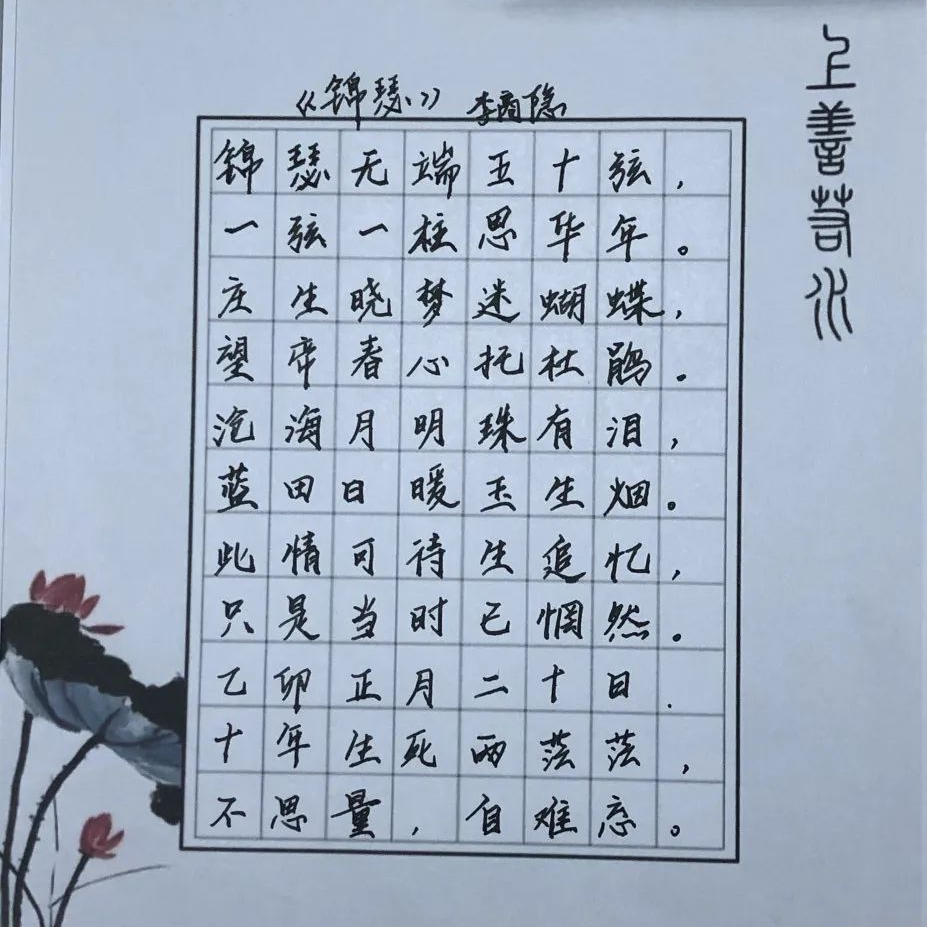 《锦瑟》 李商隐
锦瑟无端五十弦，
一弦一柱思华年。
庄生晓梦迷蝴蝶，
望帝春心托杜鹃。
沧海月明珠有泪，
蓝田日暖玉生烟。
此情可待生追忆，
只是当时已惘然。
乙卯正月二十日.
十年生死两茫茫，
不思量，自难忘。
上善若水